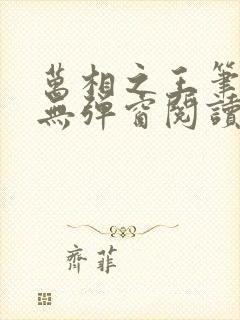 萬相之王筆
無彈窗閱讀
齊菲